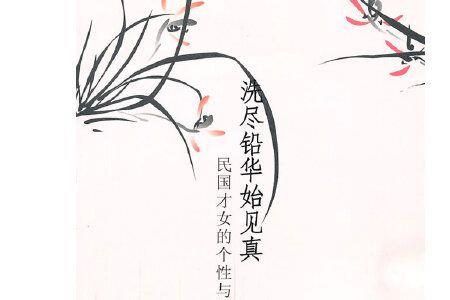 洗尽铅华始见真
民国才女的个性与